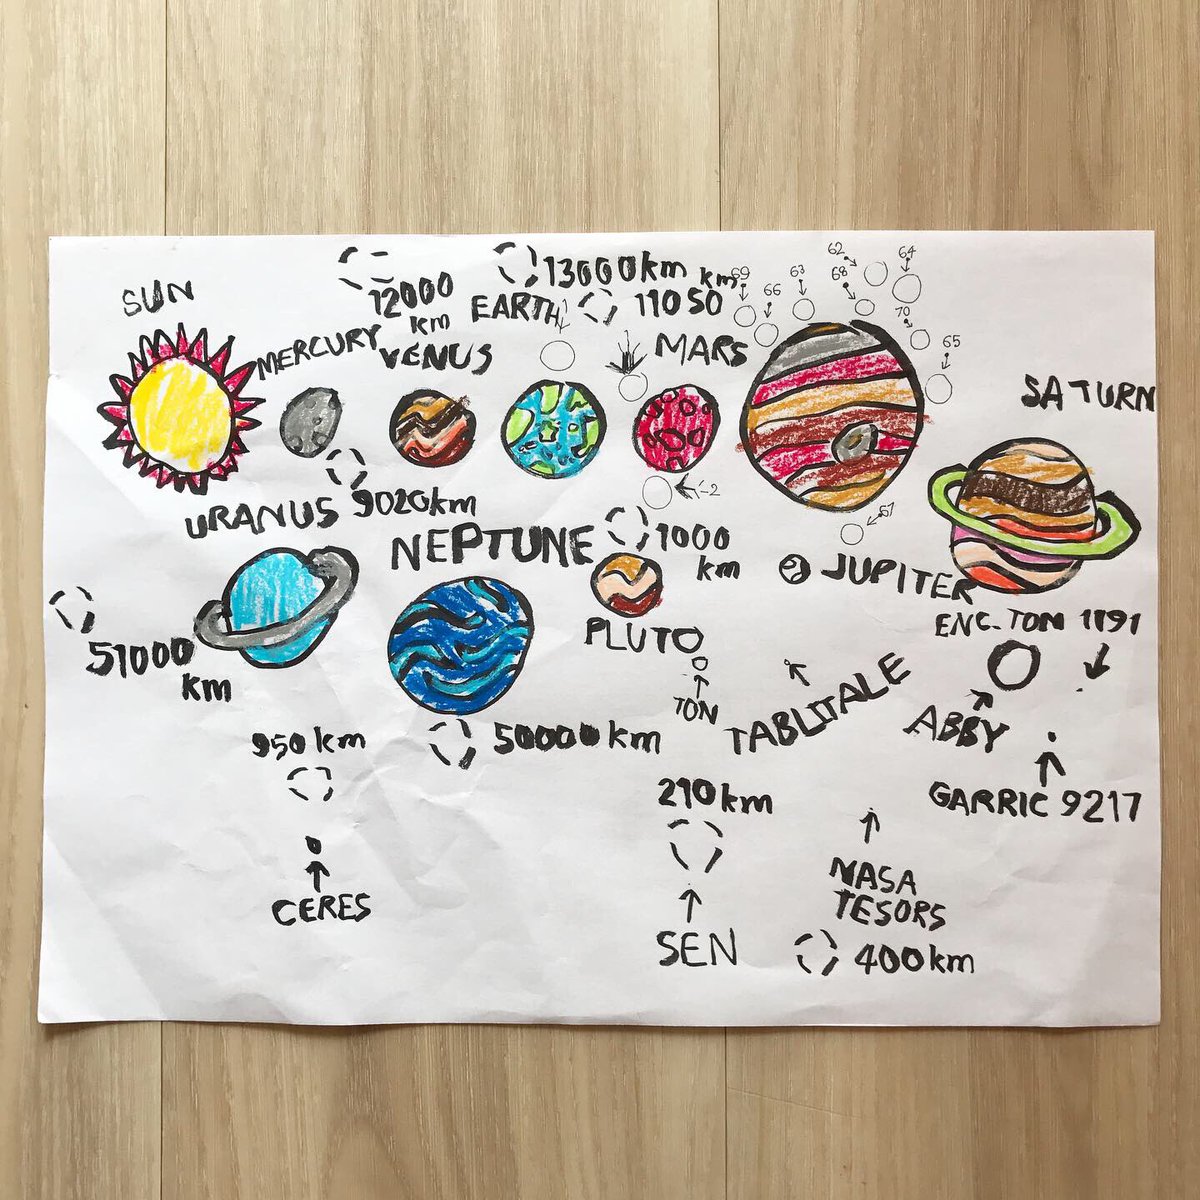 SUN
12000
km
13000km
EARTH
km
11050
69
66
63
62
68
64
70
65
MERCURY
VENUS
1
MARS
SATURN
9020km
2
67
URANUS
NEPTUNE
1000
km
JUPITER
51000
km
PLUTO
TON
TABLITALE
ENC. TOM 1191
ABBY
GARRIC 9217
950 km
50000km
210km
CERES
SEN
NASA
TESORS
400km